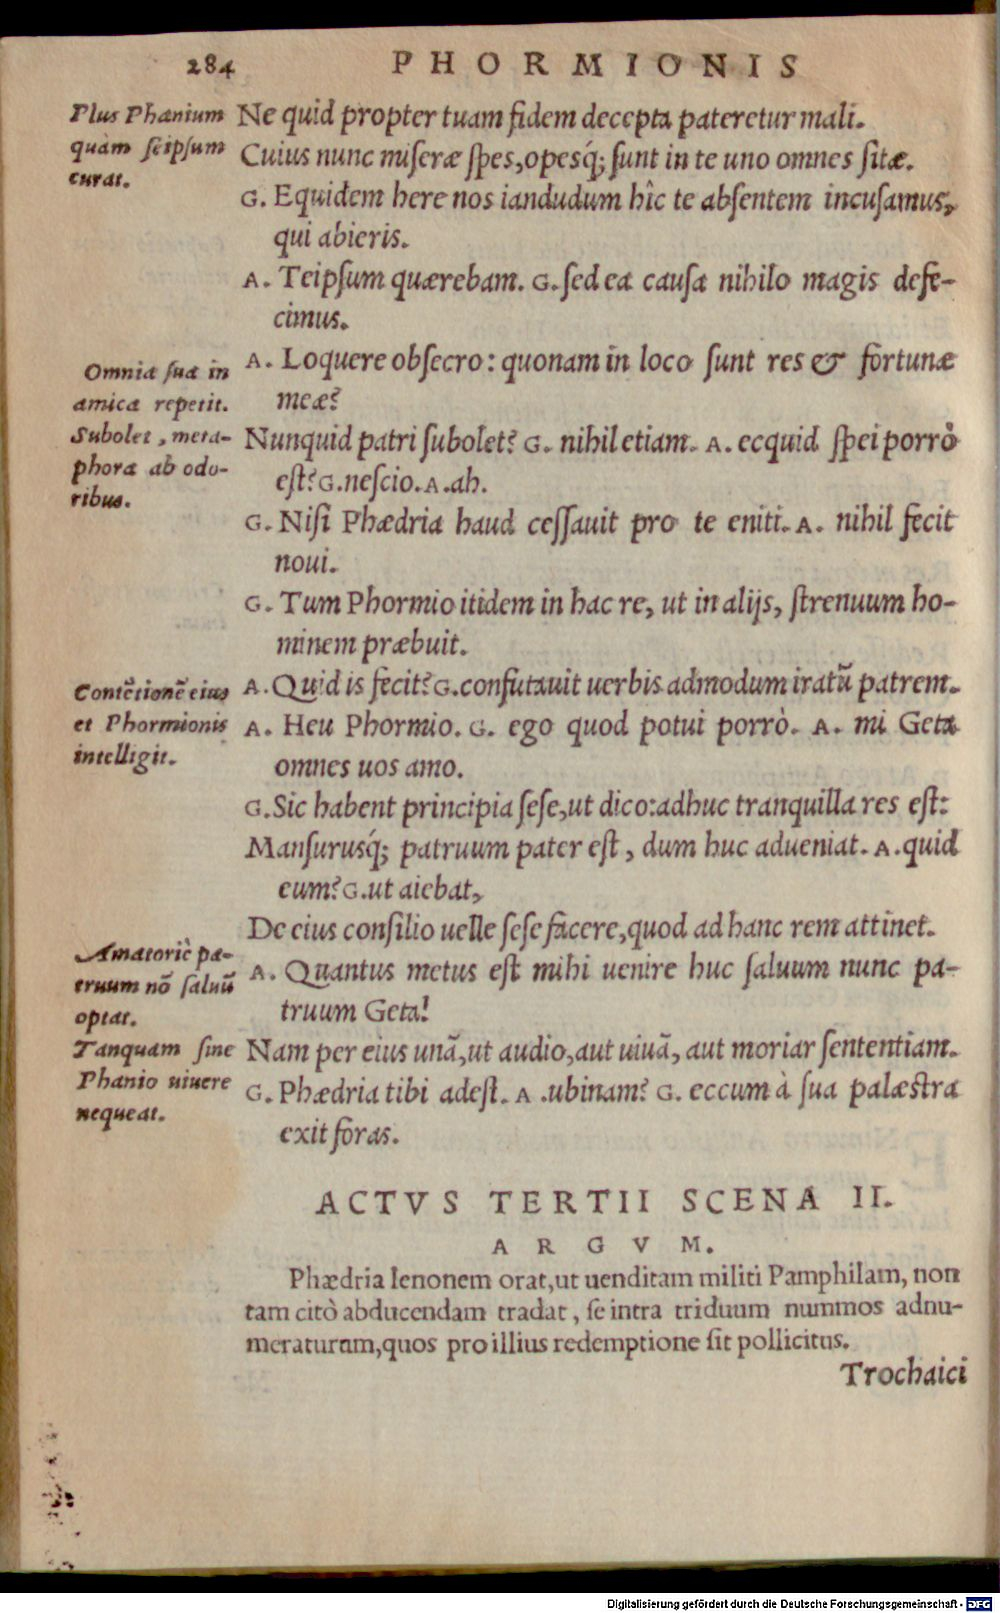 284 PHORMIONIS
Plus Phanium
quàm seipsum
curat.
Ne quid propter tuam fidem decepta pateretur mali.
Cuius nunc miseræ spes, opesq́; sunt in te uno omnes sitæ.
G. Equidem here nos iandudum hîc te absentem incusamus,
qui abieris.
A. Teipsum quærebam. G. sed ea causa nihilo magis defe-
cimus.
Omnia sua in
amica repetit.
Subolet, meta-
phora ab odo-
ribus.
A. Loquere obsecro: quonam in loco sunt res & fortunæ
meæ?
Nunquid patri subolet? G. nihil etiam. A. ecquid spei porrò
est? G. nescio. A. ah.
G. Nisi Phædria haud cessauit pro te eniti. A. nihil fecit
noui.
G. Tum Phormio itidem in hac re, ut in alijs, strenuum ho-
minem præbuit.
Contẽtionẽ eius
et Phormionis
intelligit.
A. Quid is fecit? G. confutauit uerbis admodum iratũ patrem.
A. Heu Phormio. G. ego quod potui porrò. A. mi Geta
omnes uos amo.
G. Sic habent principia sese, ut dico: adhuc tranquilla res est:
Mansurusq́; patruum pater est, dum huc adueniat. A. quid
eum? G. ut aiebat,
De eius consilio uelle sese facere, quod ad hanc rem attinet.
Amatoriè pa-
truum nõ saluũ
optat.
Tanquam sine
Phanio uiuere
nequeat.
A. Quantus metus est mihi uenire huc saluum nunc pa-
truum Geta!
Nam per eius unã, ut audio, aut uiuã, aut moriar sententiam.
G. Phædria tibi adest. A. ubinam? G. eccum à sua palæstra
exit foras.
ACTVS TERTII SCENA II.
ARGVM.
Phædria lenonem orat, ut uenditam militi Pamphilam, non
tam citò abducendam tradat, se intra triduum nummos adnu-
meraturum, quos pro illius redemptione sit pollicitus.
Trochaici
Digitalisierung gefördert durch die Deutsche Forschungsgemeinschaft - DFG